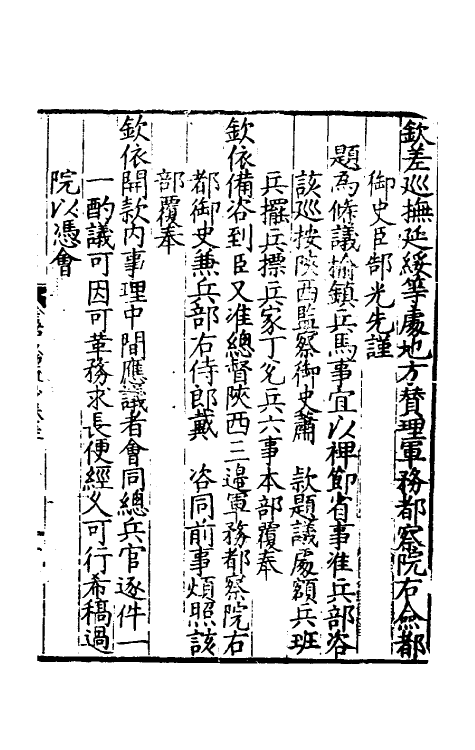 欽差巡撫延綏等處地方贊理軍務都察院右僉都
御史臣郜光先謹
題爲條議揄鎮兵馬事宜以裨節省事准兵部咨
該巡按陜西監察御史蕭 款題議處額兵班
兵擺兵摽兵家丁兌兵六事本部覆奉
欽依備咨到臣又准總督陜西三邊軍務都察院右
都御史兼兵部右侍郎戴 咨同前事煩照該
部覆奉
欽依開款内事理中間應議者會同總兵官逐件一
一酌議可因可革務求長便經久可行希稿過
院以憑會